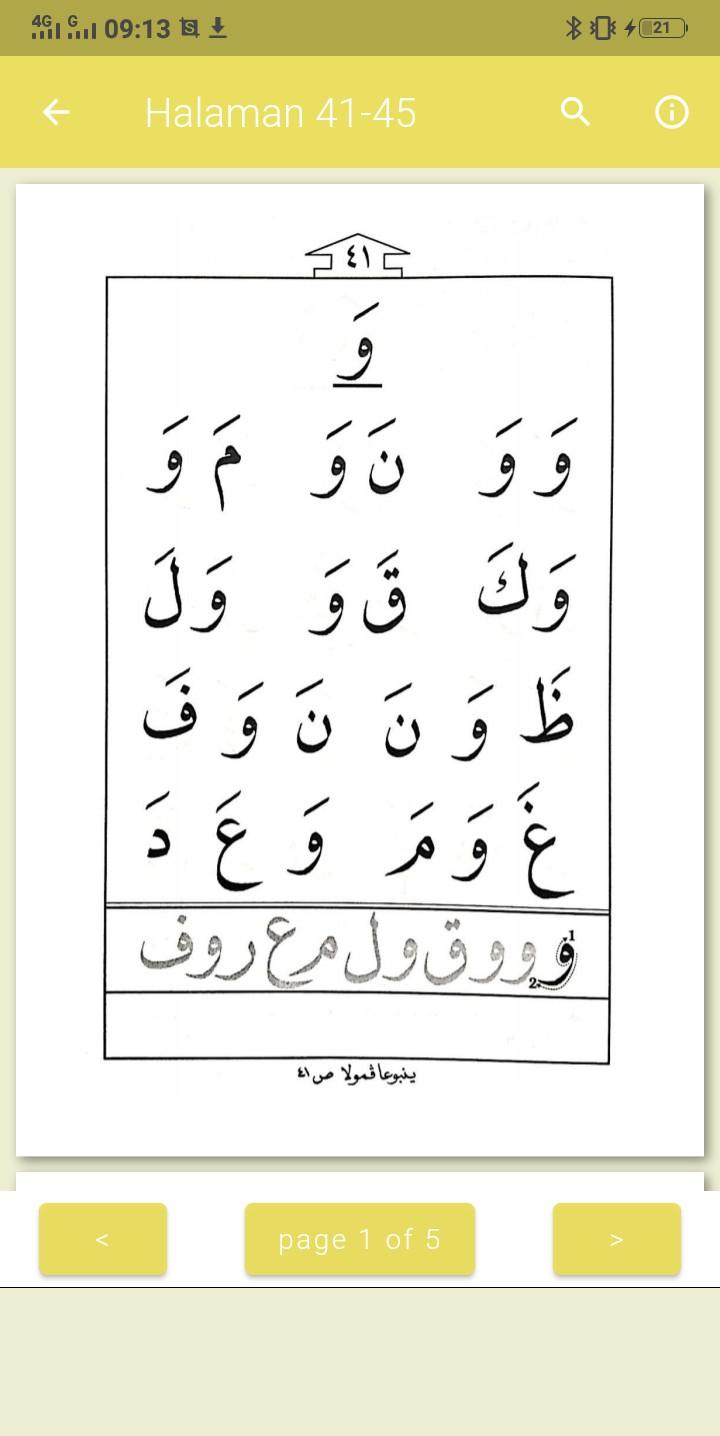 4G G 09:13 21
Halaman 41-45
٤١
وَ
وَ وَ نَ وَ مَ وَ
وَ كَ قَ وَ وَ لَ
ظَ وَ نَ نَ وَ فَ
غَ وَ مَ وَ عَ دَ
و و و ق و ل م ع ر و ف
1
2
ينبوعا ڤمولا ص ٤١
< page 1 of 5 >